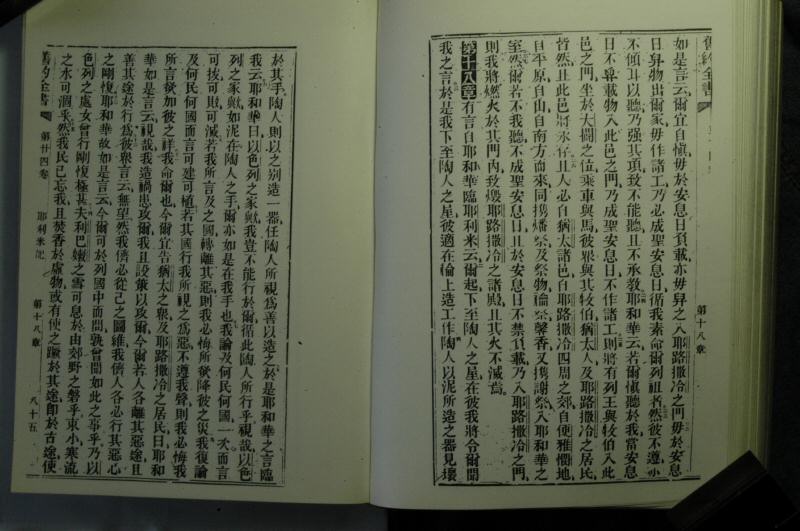 舊約全書
第十八章
如是言云爾宜自愼毋於安息日負載亦毋舁之入耶路撒冷之門毋於安息
日舁物出爾家毋作諸工乃必成聖安息日循我素命爾列祖者然彼不遵
不傾耳以聽乃強其項致不能聽且不承敎耶和華云若爾愼聽於我當安息
日不舁載物入此邑之門乃成聖安息日不作諸工則將有列王與牧伯入此
邑之門坐於大闢之位乘車與馬彼衆與其牧伯猶太人及耶路撒冷之居民
皆然且此邑將永存且人必自猶太諸邑自耶路撒冷四周之郊自便雅憫地
自平原自山自南方而來同攜燔祭及祭物禴祭馨香又攜謝祭入耶和華之
室然爾若不我聽不成聖安息日且於安息日不禁負載乃入耶路撒冷之門
則我將燃火於其門內致燬耶路撒冷之諸殿且其火不滅焉
第十八章有言自耶和華臨耶利米云爾起下至陶人之屋在彼我將令爾聞
我之言於是我下至陶人之屋彼適在輪上造工作陶人以泥所造之器見壞
於其手陶人則以之别造一器任陶人所視爲善以造之於是耶和華之言臨
我云耶和華曰以色列之家歟我豈不能行於爾循此陶人所行乎視哉以色
列之家歟如泥在陶人之手爾亦如是在我手也我論及何民何國一次而言
可拔可毀可滅若我所言及之國轉離其惡則我必悔所欲降彼之災我復論
及何民何國而言可建可植若其國行我所視之爲惡不遵我聲則我必悔我
所言欲加彼之祥我命爾也今爾宜告猶太之衆及耶路撒冷之居民曰耶和
華如是言云視哉我造禍患攻爾我且設策以攻爾今爾若人各離其惡途且
善其途於行爲彼衆言云無望然我儕必從己之圖維我儕人各必行其惡心
之剛愎耶和華故如是言云今爾可於列國中而問孰曾聞如此之事乎乃以
色列之處女曾行剛愎極甚夫利巴嫩之雪可息於由郊野之磐乎東小寒流
之水可涸乎然我民已忘我且焚香於虛物或有使之蹶於其途卽於古途使
舊約全書
第廿四卷
耶利米記
第十八章
八十五